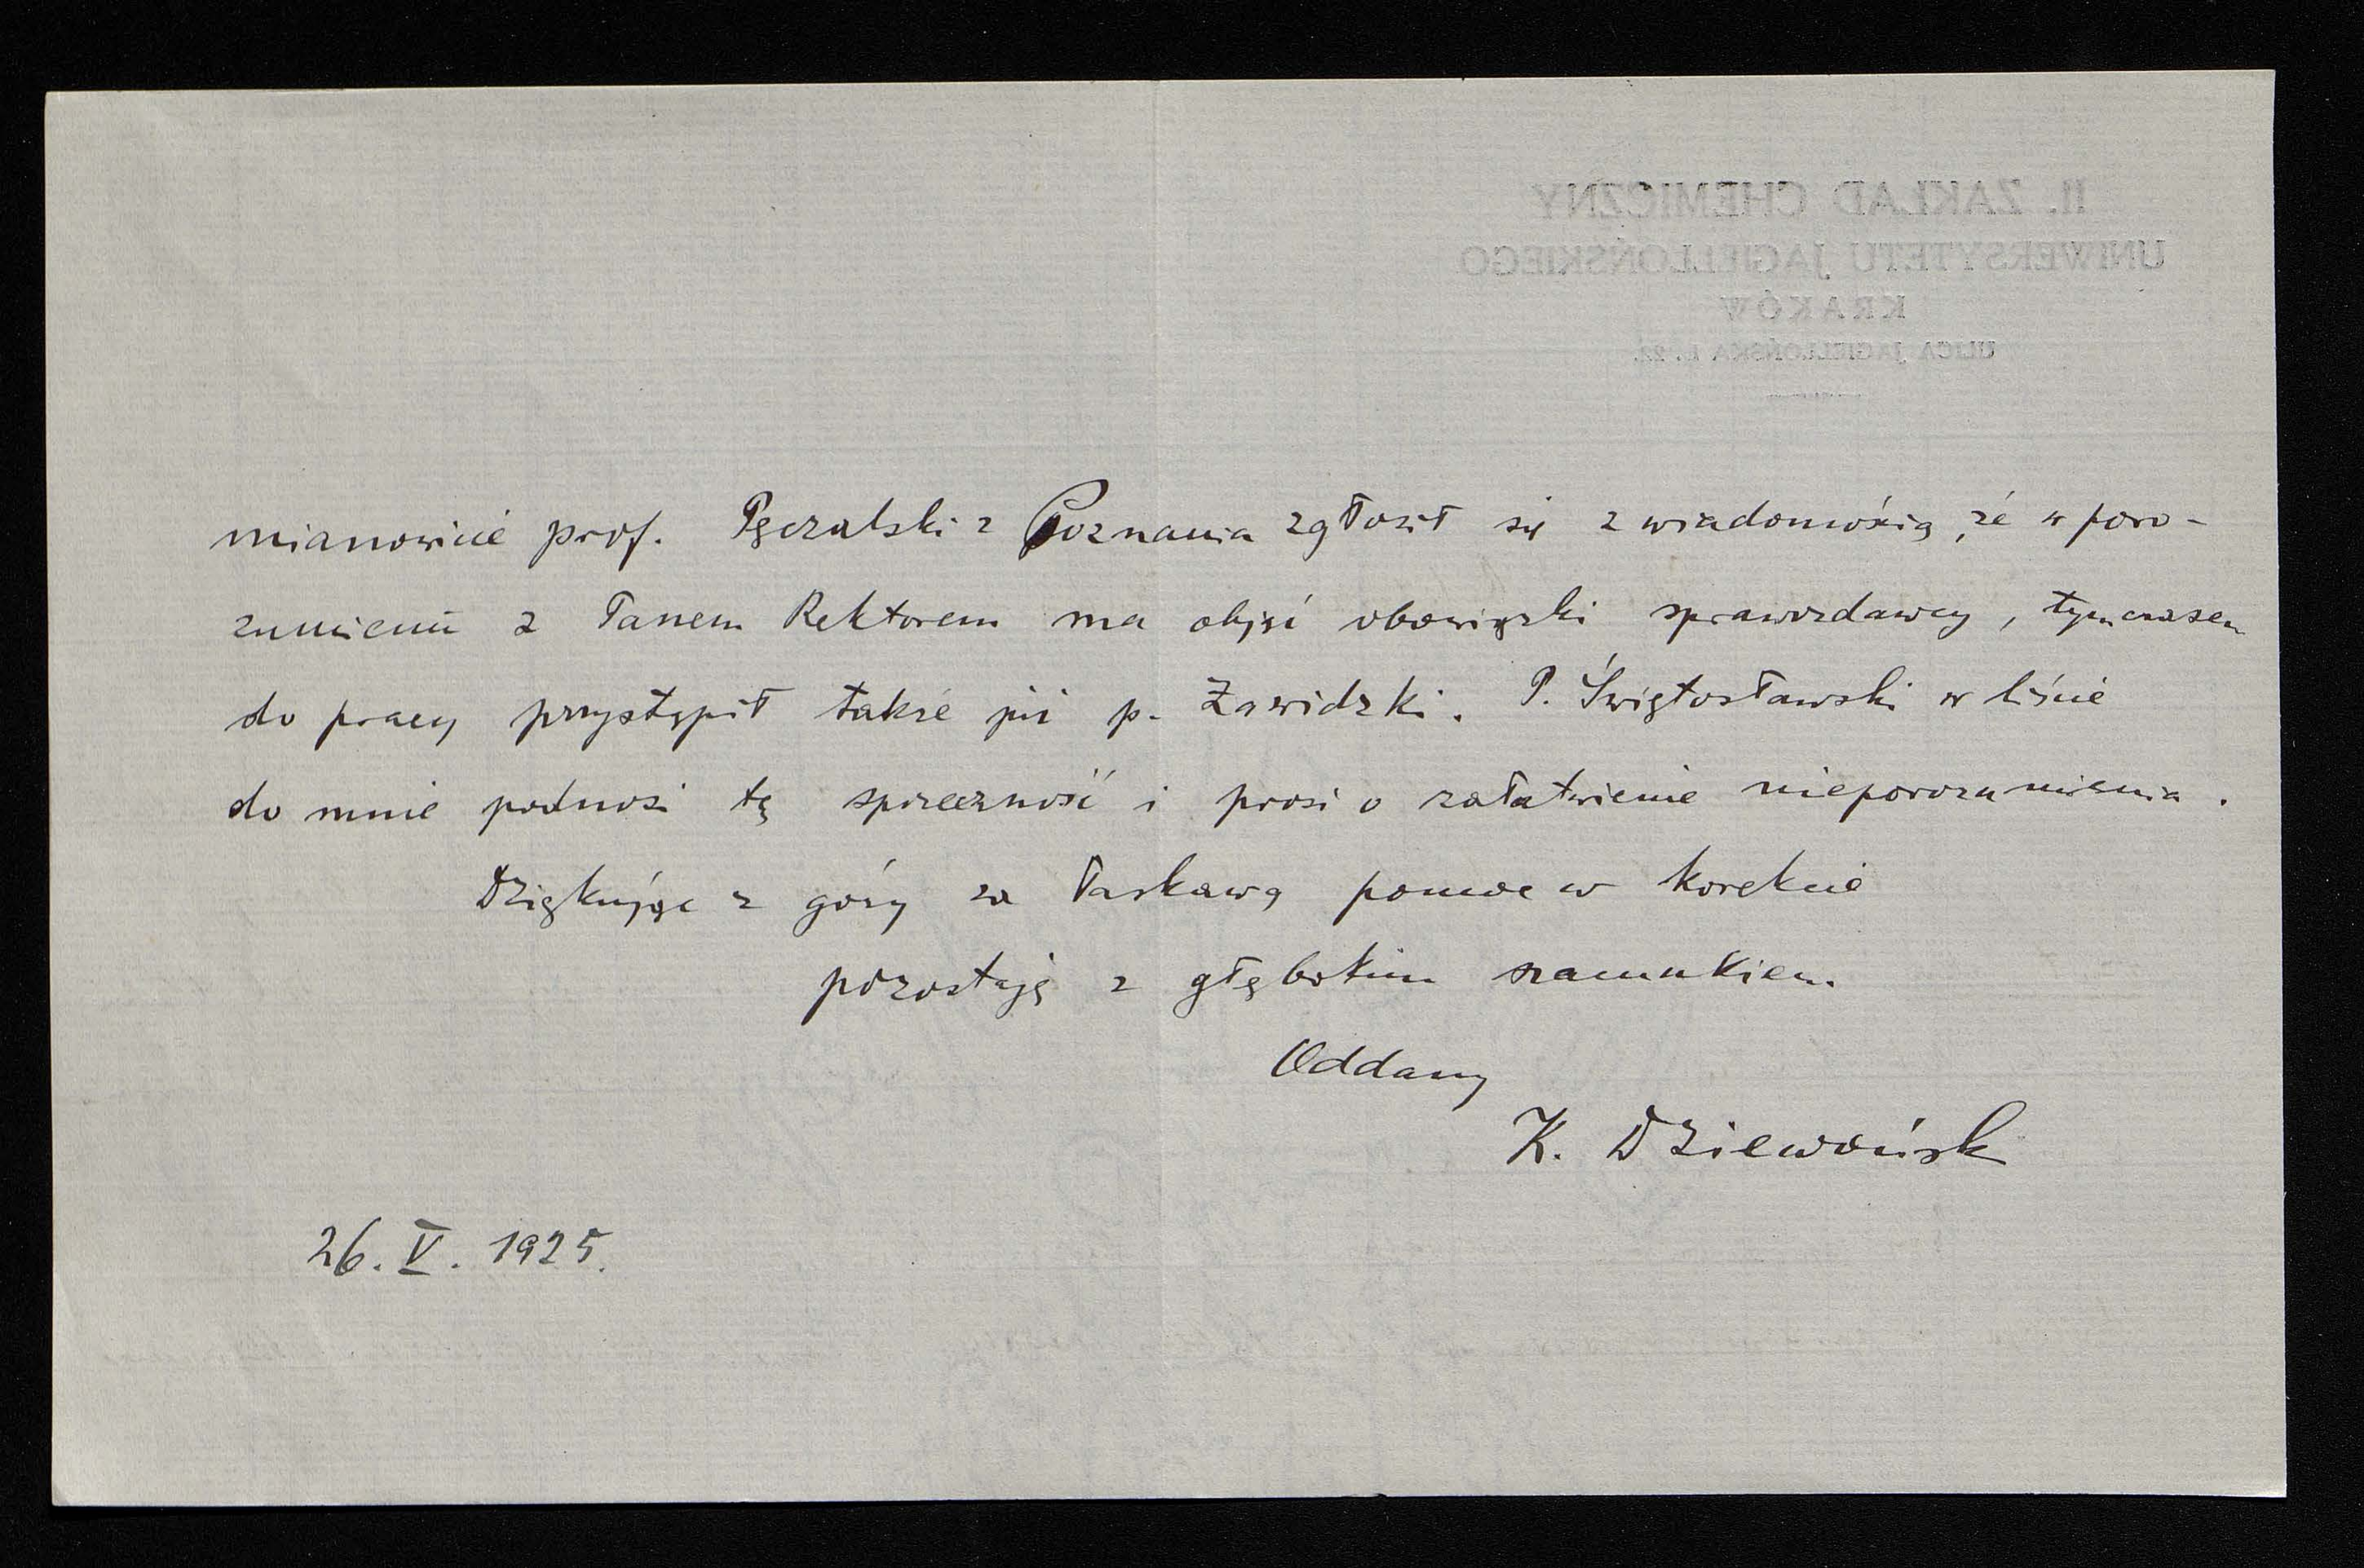 II. ZAKŁAD CHEMICZNY
UNIWERSYTETU JAGIELLOŃSKIEGO
KRAKÓW
ULICA JAGIELLOŃSKA L. 22.
mianowicie prof. Pęczalski z Poznania zgłosił się z wiadomością, że w poro-
zumieniu z Panem Rektorem ma objąć obowiązki sprawozdawcy, tymczasem
do pracy przystąpił także już p. Zawidzki. P. Świętosławski w liście
do mnie podnosi tę sprzeczność i prosi o załatwienie nieporozumienia.
Dziękując z góry za łaskawą pomoc w korekcie
pozostaję z głębokim szacunkiem
Oddany
K. Dziewońsk
26. V. 1925.